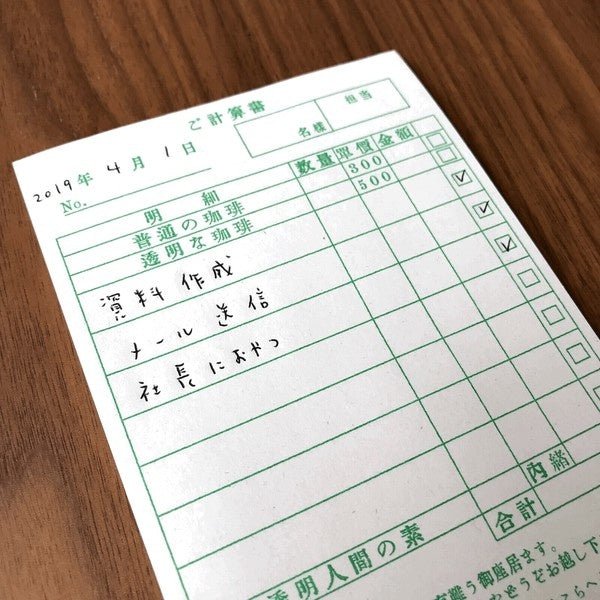 ご計算書
2019年 4月 1日
名様 担当
No.
明細 数量 單價 金額
普通の珈琲 300
透明な珈琲 500
資料作成
メール送信
社長におやつ
内緒
合計
透明人間の素
難う御座居ます。
どうぞお越し下